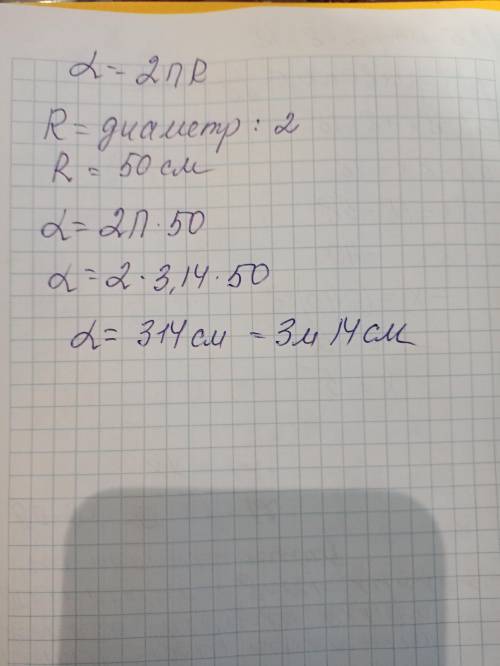 L = 2ПR
R = диаметр : 2
R = 50 см
L = 2П · 50
L = 2 · 3,14 · 50
L = 314 см = 3м 14 см